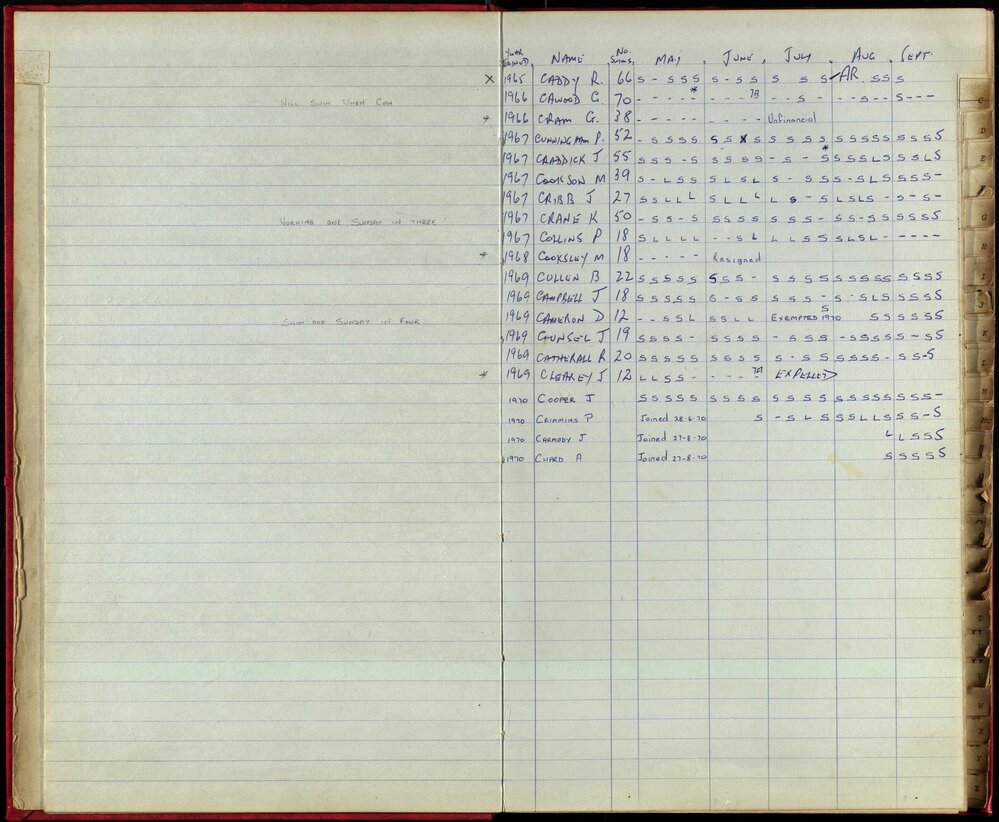 Year Joined NAME No. Swims. MAY JUNE JULY AUG SEPT.
X 1965 CADDY R. 66 S - S S S S - S S S S S AR S S S S
WILL SWIM WHEN CAN
1966 CAWOOD G. 70 - - - - - * - - - - S - - - S - - S - - -
* 1966 CRAM G. 38 - - - - - - - - - Unfinancial
1967 CUNNINGHAM P. 52 - S S S S S S X S S S S S S S S S S S S S S
1967 CRADDICK J 55 S S S - S S S S S - S - S * S S S L S S S L S
1967 COOKSON M 39 S - L S S S L S L S - S S S - S L S S S S -
1967 CRIBB J 27 S S L L L S L L L L S - S L S L S - S - S -
WORKING ONE SUNDAY IN THREE
1967 CRANE K 50 - S S - S S S S S S S S - S S - S S S S S S
1967 COLLINS P 18 S L L L L - - S L L L S S S L S L - - - - -
* 1968 COOKSLEY M 18 - - - - - Resigned
1969 CULLEN B 22 S S S S S S S S - S S S S S S S S S S S S S
1969 CAMPBELL J 18 S S S S S S - S S S S S - S - S L S S S S S
SWIM ONE SUNDAY IN FOUR
1969 CAMERON D 12 - - S S L S S L L EXEMPTED 1970 S S S S S S S
1969 COUNSEL J 19 S S S S - S S S S - S S S - S S S S S - S S
1969 CATHERALL R 20 S S S S S S S S S S - S S S S S S - S S - S
* 1969 CLEAREY J 12 L L S S - - - - EXPELLED
1970 COOPER J S S S S S S S S S S S S S S S S S S S S S -
1970 CRIMMINS P Joined 28-6-70 S S - S L S S S L L S S S - S
1970 CARMODY J Joined 27-8-70 L L S S S
1970 CHARD A Joined 27-8-70 S S S S S
C
D
E
G
H
I
J
K
L
M
W
X
Y
Z